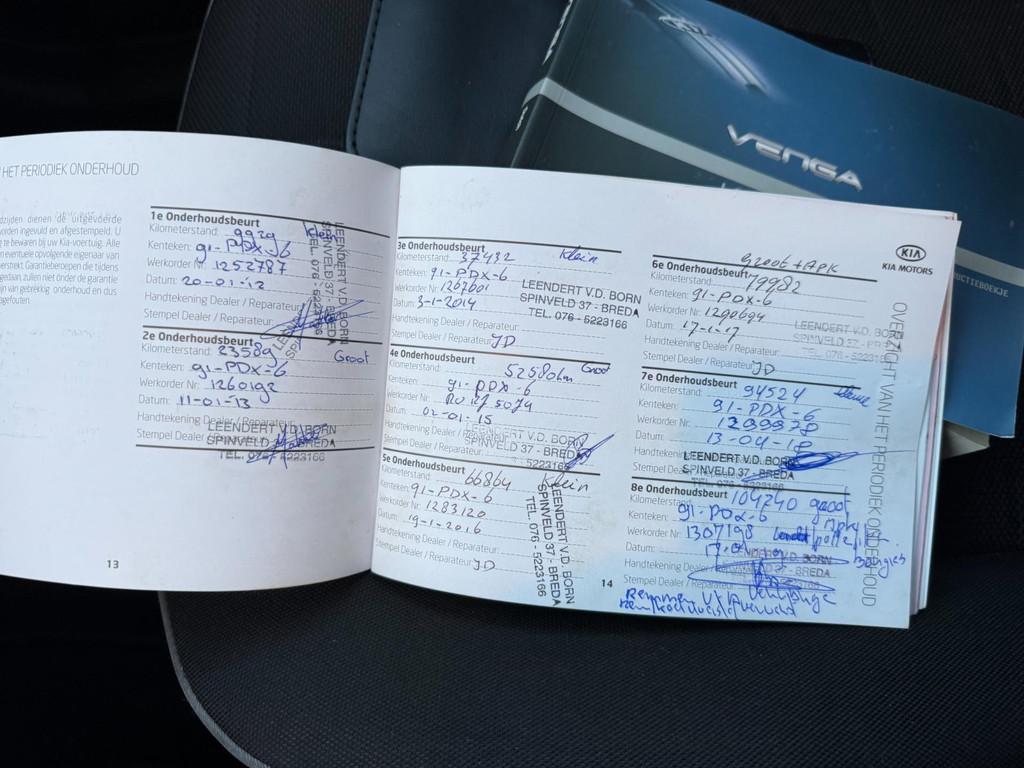 HET PERIODIEK ONDERHOUD
dzijden dienen de uitgevoerde
worden ingevuld en afgestempeld. U
g te bewaren bij uw Kia-voertuig. Alle
eventuele opvolgende eigenaar van
erstrekt. Garantieberoepen die tijdens
gedaan, zullen niet onder de garantie
ijn van gebrekkig onderhoud en dus
1e Onderhoudsbeurt
Kilometerstand: 9929 klein
Kenteken: 91-PDX-6
Werkorder Nr: 1252787
Datum: 20-01-12
Handtekening Dealer / Reparateur:
Stempel Dealer / Reparateur:
LEENDERT V.D. BORN
SPINVELD 37 - BREDA
TEL. 076 - 5223166
2e Onderhoudsbeurt
Kilometerstand: 23589 Groot
Kenteken: 91-PDX-6
Werkorder Nr: 1260192
Datum: 11-01-13
Handtekening Dealer / Reparateur:
Stempel Dealer
LEENDERT V.D. BORN
SPINVELD 37 - BREDA
TEL. 076 - 5223166
13
3e Onderhoudsbeurt
Kilometerstand: 37432 klein
Kenteken: 91-PDX-6
Werkorder Nr: 1267601
Datum: 3-1-2014
Handtekening Dealer / Reparateur:
Stempel Dealer / Reparateur: JD
LEENDERT V.D. BORN
SPINVELD 37 - BREDA
TEL. 076 - 5223166
4e Onderhoudsbeurt
Kilometerstand: 52580km Groot
Kenteken: 91-PDX-6
Werkorder Nr:
Datum: 02-01-15
Handtekening Dealer / Reparateur:
Stempel Dealer / Reparateur:
LEENDERT V.D. BORN
SPINVELD 37 - BREDA
5223166
5e Onderhoudsbeurt
Kilometerstand: 66864 Klein
Kenteken: 91-PDX-6
Werkorder Nr: 1283120
Datum: 19-1-2016
Handtekening Dealer / Reparateur:
Stempel Dealer / Reparateur: JD
LEENDERT V.D. BORN
SPINVELD 37 - BREDA
TEL. 076 - 5223166
14
groot + APK
6e Onderhoudsbeurt
Kilometerstand: 79982
Kenteken: 91-PDX-6
Werkorder Nr: 1290694
Datum: 17-1-17
Handtekening Dealer / Reparateur:
Stempel Dealer / Reparateur: JD
LEENDERT V.D. BORN
SPINVELD 37 - BREDA
TEL. 076 - 5223166
7e Onderhoudsbeurt
Kilometerstand: 94524
Kenteken: 91-PDX-6
Werkorder Nr: 1299978
Datum: 13-04-18
LEENDERT V.D. BORN
SPINVELD 37 - BREDA
TEL. 076 - 5223166
8e Onderhoudsbeurt
Kilometerstand: 104240 groot
Kenteken: 91-PDX-6
Werkorder Nr: 1307198
Datum:
Handtekening Dealer / Reparateur:
Stempel Dealer / Reparateur:
KIA
KIA MOTORS
OVERZICHT VAN HET PERIODIEK ONDERHOUD
VENGA